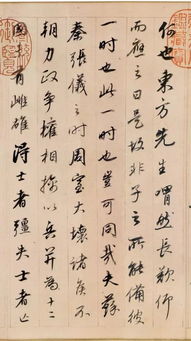 何也東方先生喟然長歎仰
而應之曰是故非子之所能備彼
一時也此一時也豈可同哉夫蘇
秦張儀之時周室大壞諸侯不
朝力政爭權相擒以兵并為十二
國未有雌雄得士者彊失士者亡